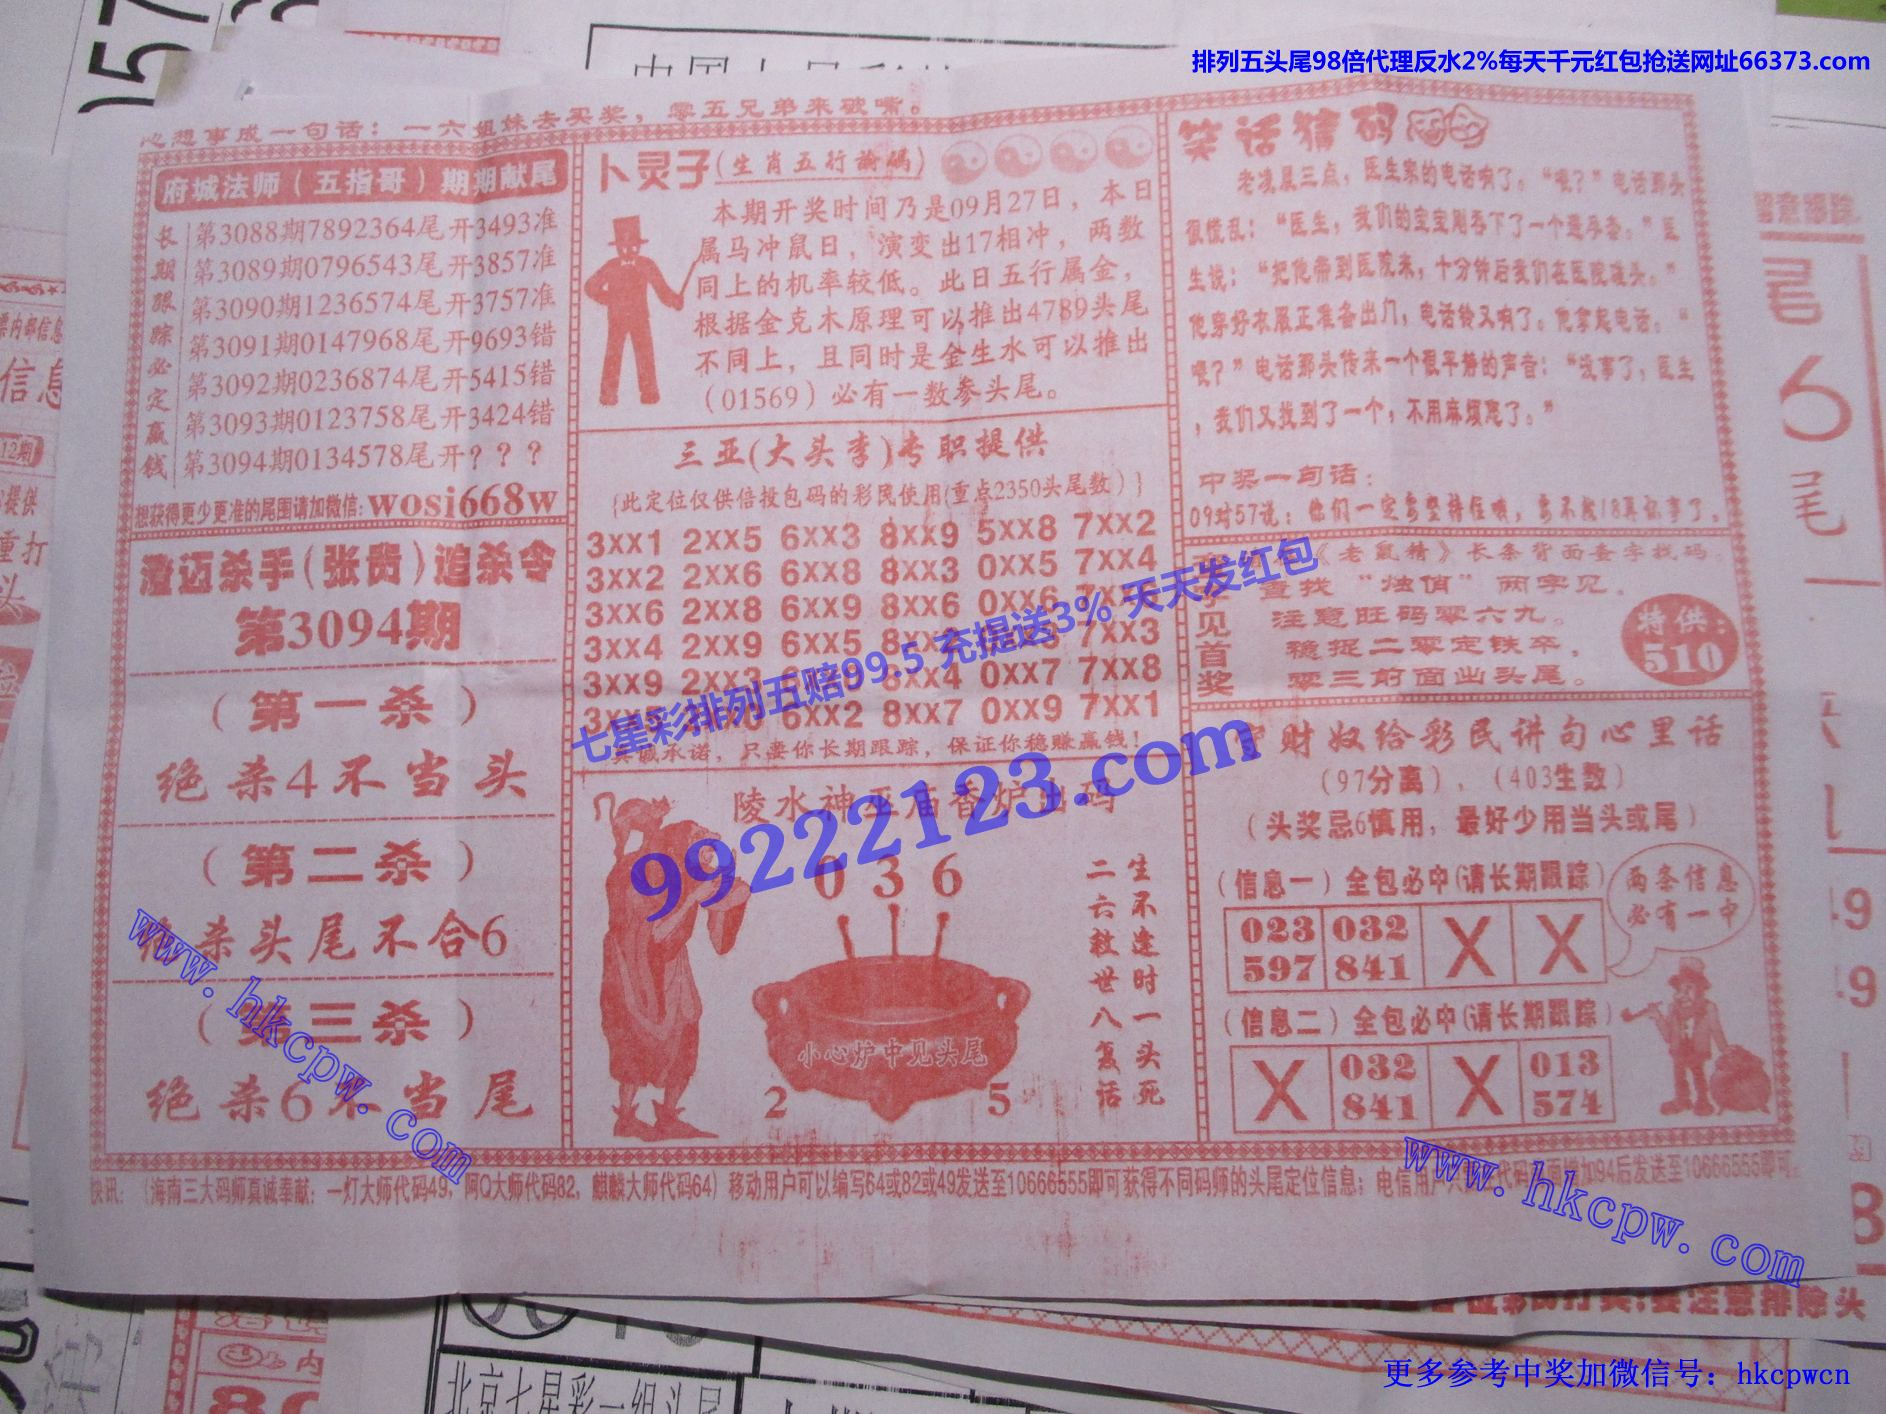 排列五头尾98倍代理反水2%每天千元红包抢送网址66373.com
心想事成一句话：一六姐妹去买奖，零五兄弟来破嘴。
府城法师（五指哥）期期献尾
长期跟踪必定赢钱
第3088期7892364尾开3493准
第3089期0796543尾开3857准
第3090期1236574尾开3757准
第3091期0147968尾开9693错
第3092期0236874尾开5415错
第3093期0123758尾开3424错
第3094期0134578尾开？？？
想获得更少更准的尾围请加微信: wosi668w
澄迈杀手(张贵)追杀令
第3094期
（第一杀）
绝杀4不当头
（第二杀）
绝杀头尾不合6
（第三杀）
绝杀6不当尾
卜灵子(生肖五行论码)
本期开奖时间乃是09月27日，本日
属马冲鼠日，演变出17相冲，两数
同上的机率较低。此日五行属金，
根据金克木原理可以推出4789头尾
不同上，且同时是金生水可以推出
（01569）必有一数参头尾。
三亚(大头李)专职提供
{此定位仅供倍投包码的彩民使用(重点2350头尾数）}
3XX1 2XX5 6XX3 8XX9 5XX8 7XX2
3XX2 2XX6 6XX8 8XX3 0XX5 7XX4
3XX6 2XX8 6XX9 8XX6 0XX6
3XX4 2XX9 6XX5 7XX3
3XX9 2XX3 8XX4 0XX7 7XX8
6XX2 8XX7 0XX9 7XX1
真诚承诺，只要你长期跟踪，保证你稳赚赢钱！
七星彩排列五赔99.5 充提送3% 天天发红包
99222123.com
陵水神巫庙香炉出码
0 3 6
生不逢时一头死
二六救世八复话
小心炉中见头尾
2 5
笑话猜码
老凌晨三点，医生家的电话响了。“喂？”电话那头
很慌乱：“医生，我们的宝宝刚吞下了一个避孕套。”医
生说：“把他带到医院来，十分钟后我们在医院碰头。”
他穿好衣服正准备出门，电话铃又响了。他拿起电话。“
喂？”电话那头传来一个很平静的声音：“没事了，医生
，我们又找到了一个，不用麻烦您了。”
中奖一句话：
09对57说：你们一定要坚持住哦，要不然18再怀事了。
字见首奖
《老鼠精》长条背面查字找码
查找“烛俏”两字见，
注意旺码零六九。
稳捉二零定铁卒，
零三前面出头尾。
特供：
510
守财奴给彩民讲句心里话
（97分离），（403生数）
（头奖忌6慎用，最好少用当头或尾）
（信息一）全包必中(请长期跟踪)
023 032 X X
597 841
两条信息
必有一中
（信息二）全包必中(请长期跟踪)
X 032 X 013
841 574
快讯：（海南三大码师真诚奉献：一灯大师代码49，阿Q大师代码82，麒麟大师代码64）移动用户可以编写64或82或49发送至10666555即可获得不同码师的头尾定位信息；电信用户
www.hkcpw.com
www.hkcpw.com
尾
6
尾
北京七星彩一组头尾
更多参考中奖加微信号：hkcpwcn